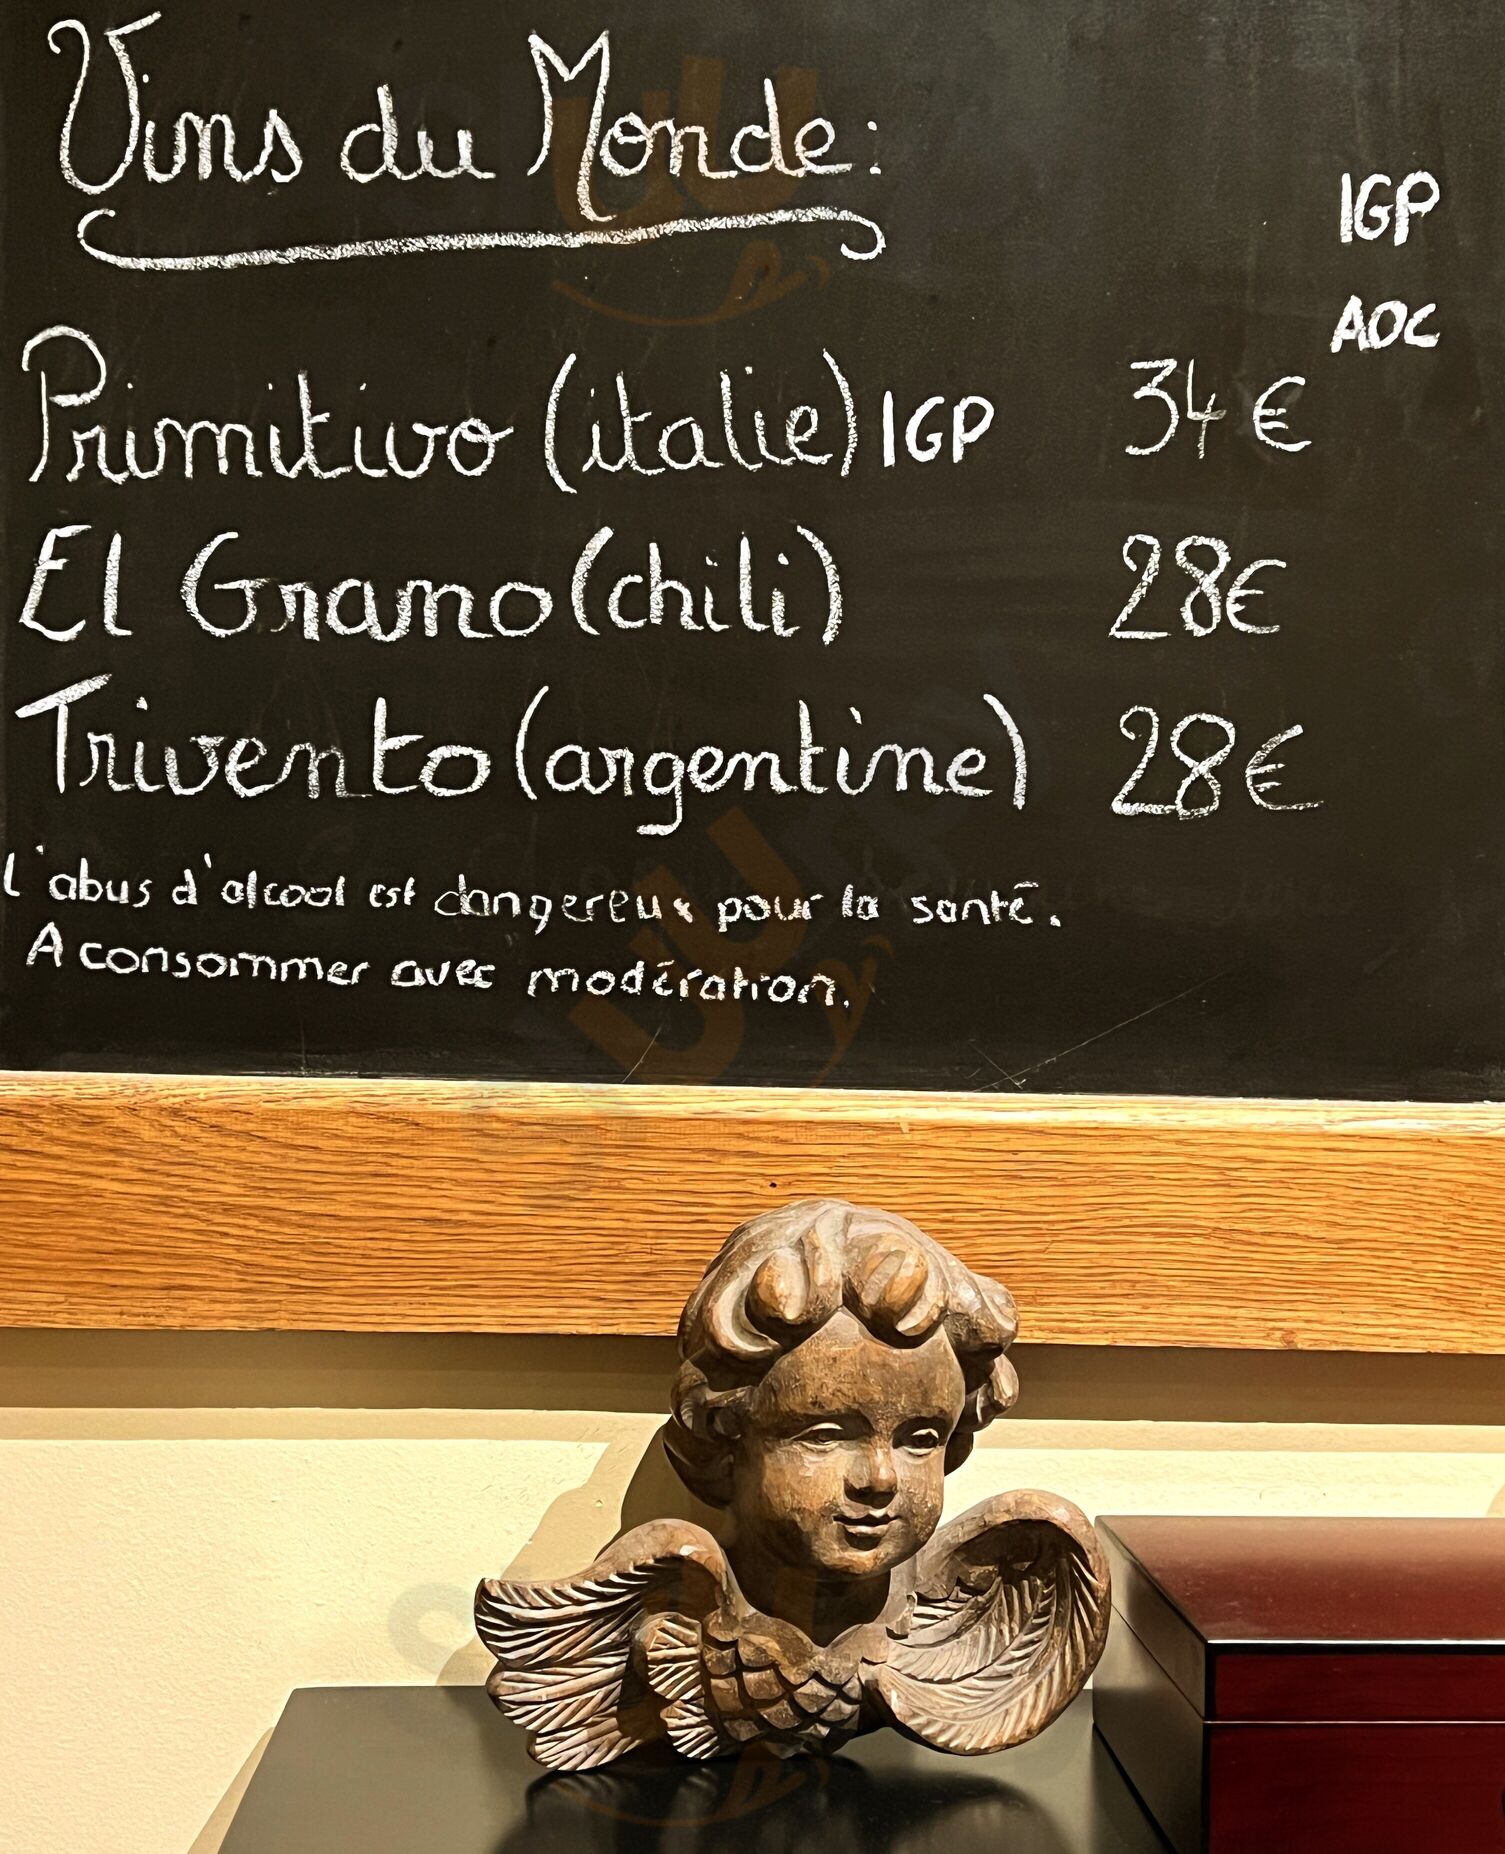 Vins du Monde :
IGP
AOC
Primitivo (italie) IGP 34 €
El Grano (chili) 28€
Trivento (argentine) 28€
l'abus d'alcool est dangereux pour la santé.
A consommer avec modération.